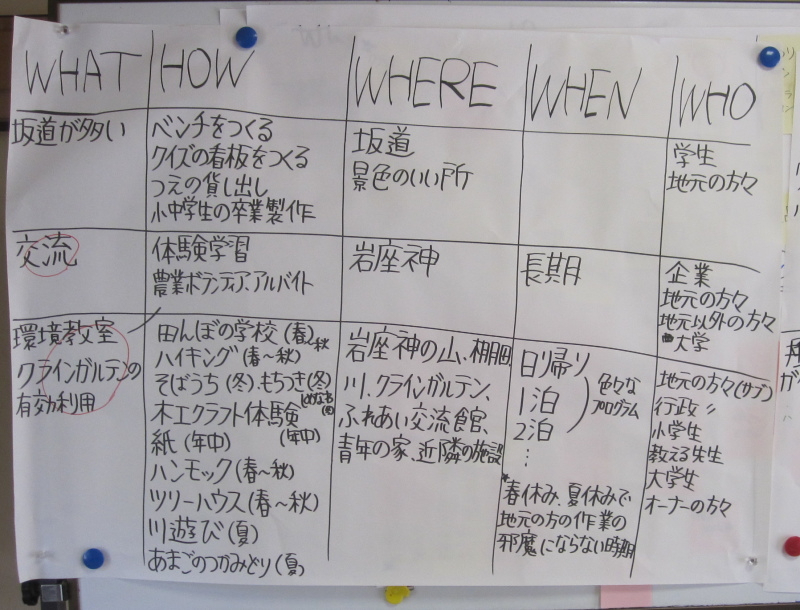 WHAT HOW WHERE WHEN WHO
坂道が多い
ベンチをつくる
クイズの看板をつくる
つえの貸し出し
小中学生の卒業製作
坂道
景色のいい所
学生
地元の方々
交流
体験学習
農業ボランティア、アルバイト
岩座神
長期
企業
地元の方々
地元以外の方々
大学
環境教室
クラインガルテンの
有効利用
田んぼの学校(春)、秋
ハイキング(春~秋)
そばうち(冬)、もちつき(冬)
木工クラフト体験
(年中)
紙(年中)
ハンモック(春~秋)
ツリーハウス(春~秋)
川遊び(夏)
あまごのつかみどり(夏)
岩座神の山、棚田
川、クラインガルテン、
ふれあい交流館、
青年の家、近隣の施設
日帰り
1泊
2泊
⋮
色々な
プログラム
*春休み、夏休みで
地元の方の作業の
邪魔にならない時期
地元の方々(サブ)
行政〃
小学生
教える先生
大学生
オーナーの方々